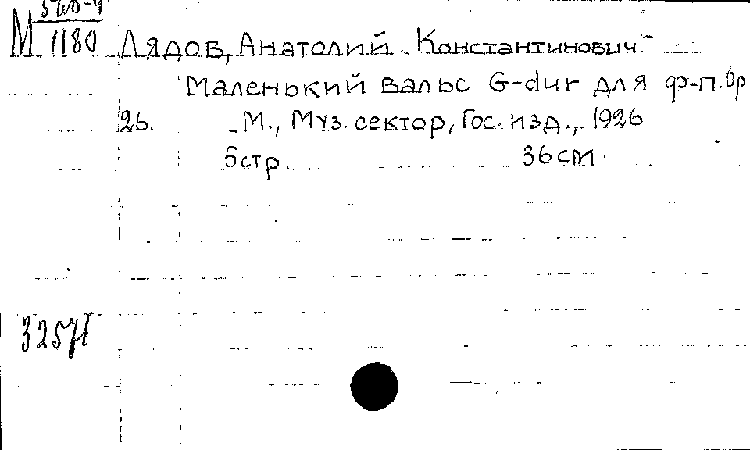 М 1180 Лядов, Анатолий Константинович
Маленький вальс G-dur для ф-п. Op
26. М., Муз. сектор, Гос. изд., 1926
5 стр. 36 см.